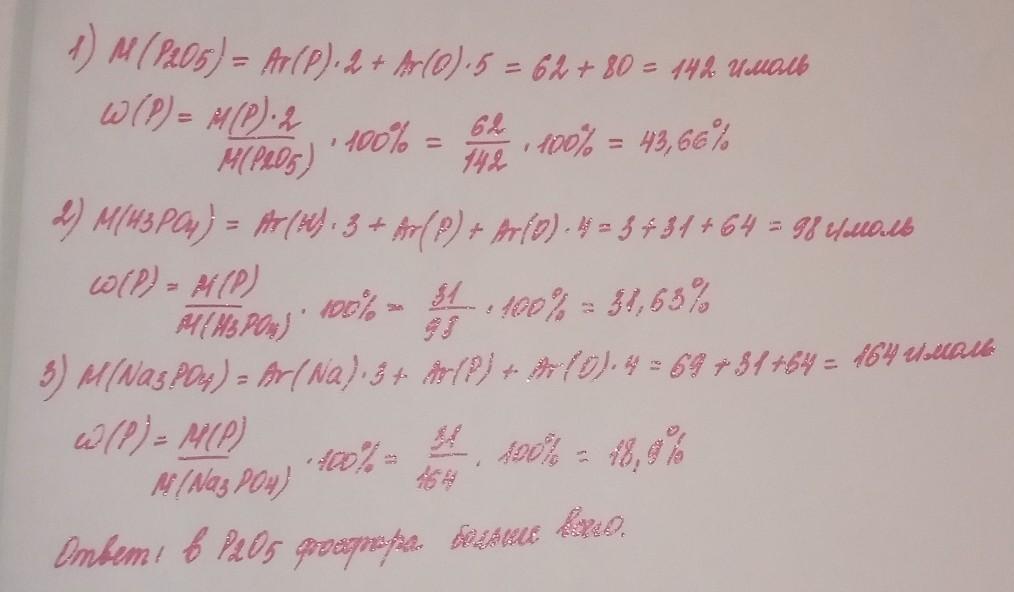 1) M(P2O5) = Ar(P)·2 + Ar(O)·5 = 62 + 80 = 142 г/моль
ω(P) = M(P)·2 / M(P2O5) · 100% = 62 / 142 · 100% = 43,66%
2) M(H3PO4) = Ar(H)·3 + Ar(P) + Ar(O)·4 = 3 + 31 + 64 = 98 г/моль
ω(P) = M(P) / M(H3PO4) · 100% = 31 / 98 · 100% = 31,63%
3) M(Na3PO4) = Ar(Na)·3 + Ar(P) + Ar(O)·4 = 69 + 31 + 64 = 164 г/моль
ω(P) = M(P) / M(Na3PO4) · 100% = 31 / 164 · 100% = 18,9%
Ответ: в P2O5 фосфора больше всего.